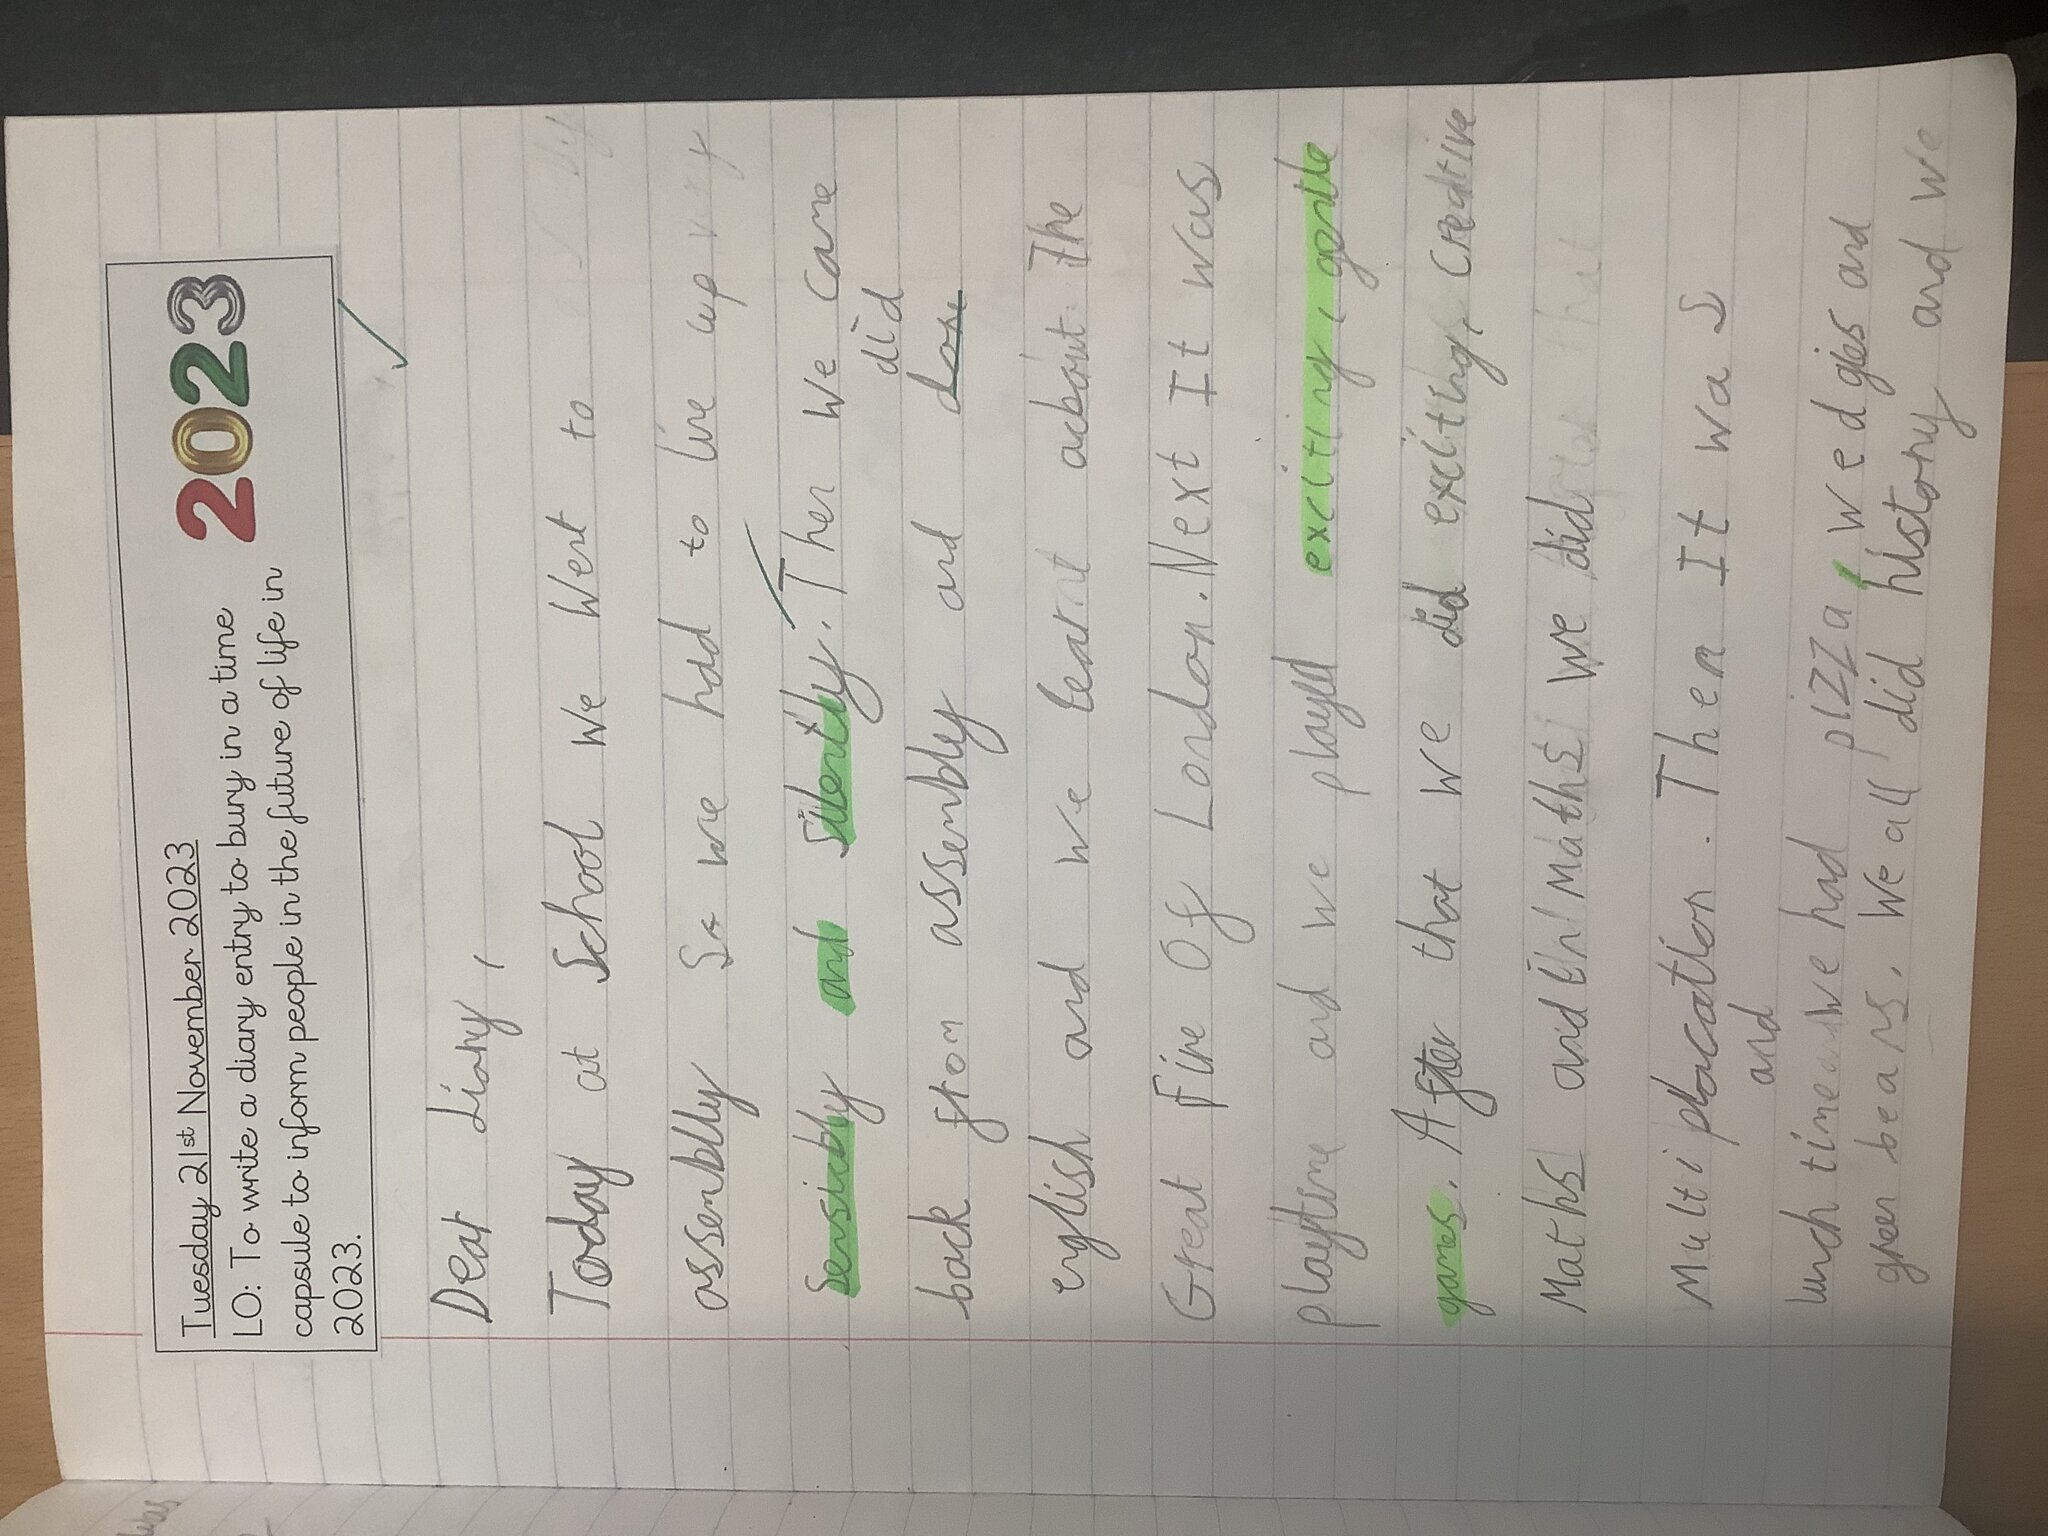 Tuesday 21st November 2023
LO: To write a diary entry to bury in a time
capsule to inform people in the future of life in
2023.
2023
Dear diary,
Today at School we went to
assembly So we had to line up very
Sensibly and silently. Then we came
did
back from assembly and done
english and we learnt about The
Great Fire Of London. Next It was
playtime and we playd exciting, gentle
games. After that we did exciting, creative
Maths and in Maths we did
Multiplacation. Then It was
and
lunch time we had pizza, wedgies and
green beans. We all did history and we